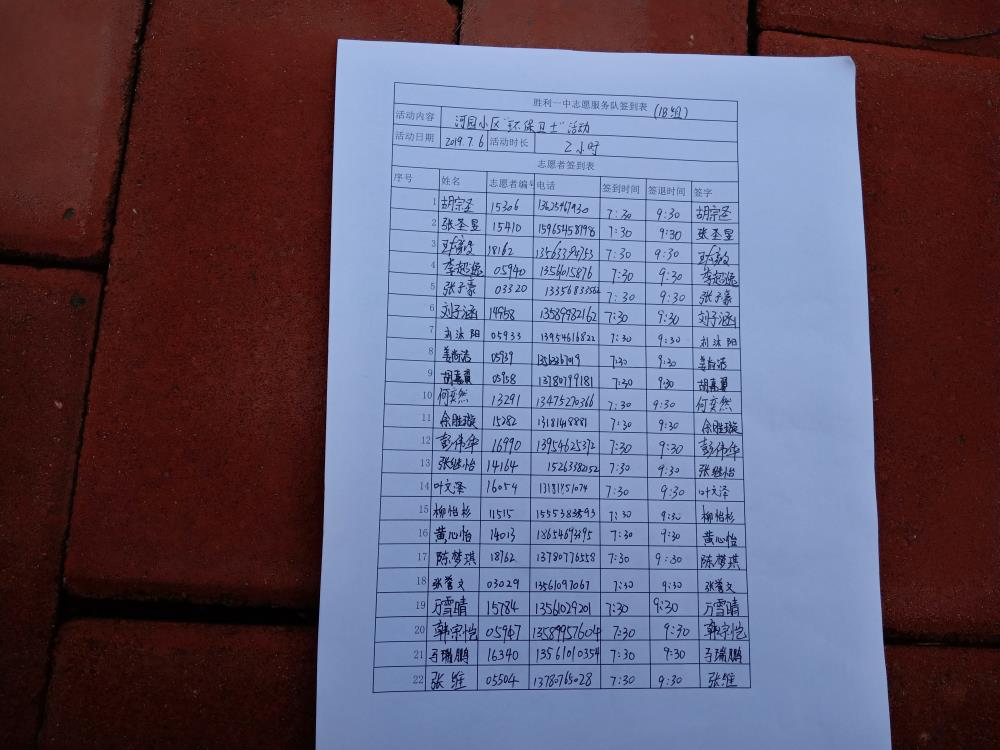 胜利一中志愿服务队签到表 (18组)
活动内容 河园小区"环保卫士"活动
活动日期 2019.7.6 活动时长 2小时
志愿者签到表
序号 姓名 志愿者编号 电话 签到时间 签退时间 签字
1 胡宗圣 15306 13625467430 7:30 9:30 胡宗圣
2 张圣昱 15410 15965458198 7:30 9:30 张圣昱
3 18162 7:30 9:30
4 李超逸 05940 1356015876 7:30 9:30 李超逸
5 张子豪 03320 13356833562 7:30 9:30 张子豪
6 刘子涵 14958 13589982162 7:30 9:30 刘子涵
7 刘法阳 05933 13954616822 7:30 9:30 刘法阳
8 姜尚洁 05939 7:30 9:30 姜尚洁
9 胡嘉翼 05958 13780799181 7:30 9:30 胡嘉翼
10 何奕然 13291 13475270366 7:30 9:30 何奕然
11 余胜璇 15282 7:30 9:30 余胜璇
12 彭伟华 16990 13954625372 7:30 9:30 彭伟华
13 张继怡 14164 15263382152 7:30 9:30 张继怡
14 叶文泽 16054 13181751074 7:30 9:30 叶文泽
15 柳怡杉 11515 15553838593 7:30 9:30 柳怡杉
16 黄心怡 14013 18654693195 7:30 9:30 黄心怡
17 陈梦琪 18762 13780776558 7:30 9:30 陈梦琪
18 张誉文 03029 13561097067 7:30 9:30 张誉文
19 万雪晴 15784 13561029201 7:30 9:30 万雪晴
20 韩宗恺 05947 13589957604 7:30 9:30 韩宗恺
21 马瑞鹏 16340 13561010354 7:30 9:30 马瑞鹏
22 张维 05504 13780765028 7:30 9:30 张维